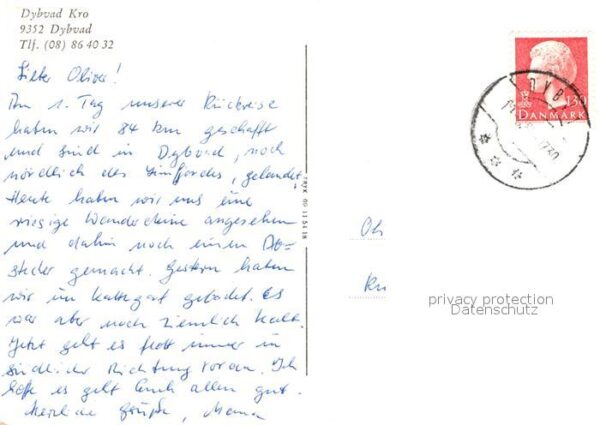 Dybvad Kro
9352 Dybvad
Tlf. (08) 86 40 32
Lieber Oliver!
Am 1. Tag unserer Rückreise
haben wir 84 km geschafft
und sind in Dybvad, noch
nördlich des Limfjordes, gelandet.
Heute haben wir uns eine
riesige Wanderdüne angesehen
und dahin noch einen Ab-
stecher gemacht. Gestern haben
wir im Kattegat gebadet. Es
war aber noch ziemlich kalt.
Jetzt geht es flott immer in
südlicher Richtung voran. Ich
hoffe es geht Euch allen gut.
Herzliche Grüße, Mama
130
DANMARK
privacy protection
Datenschutz